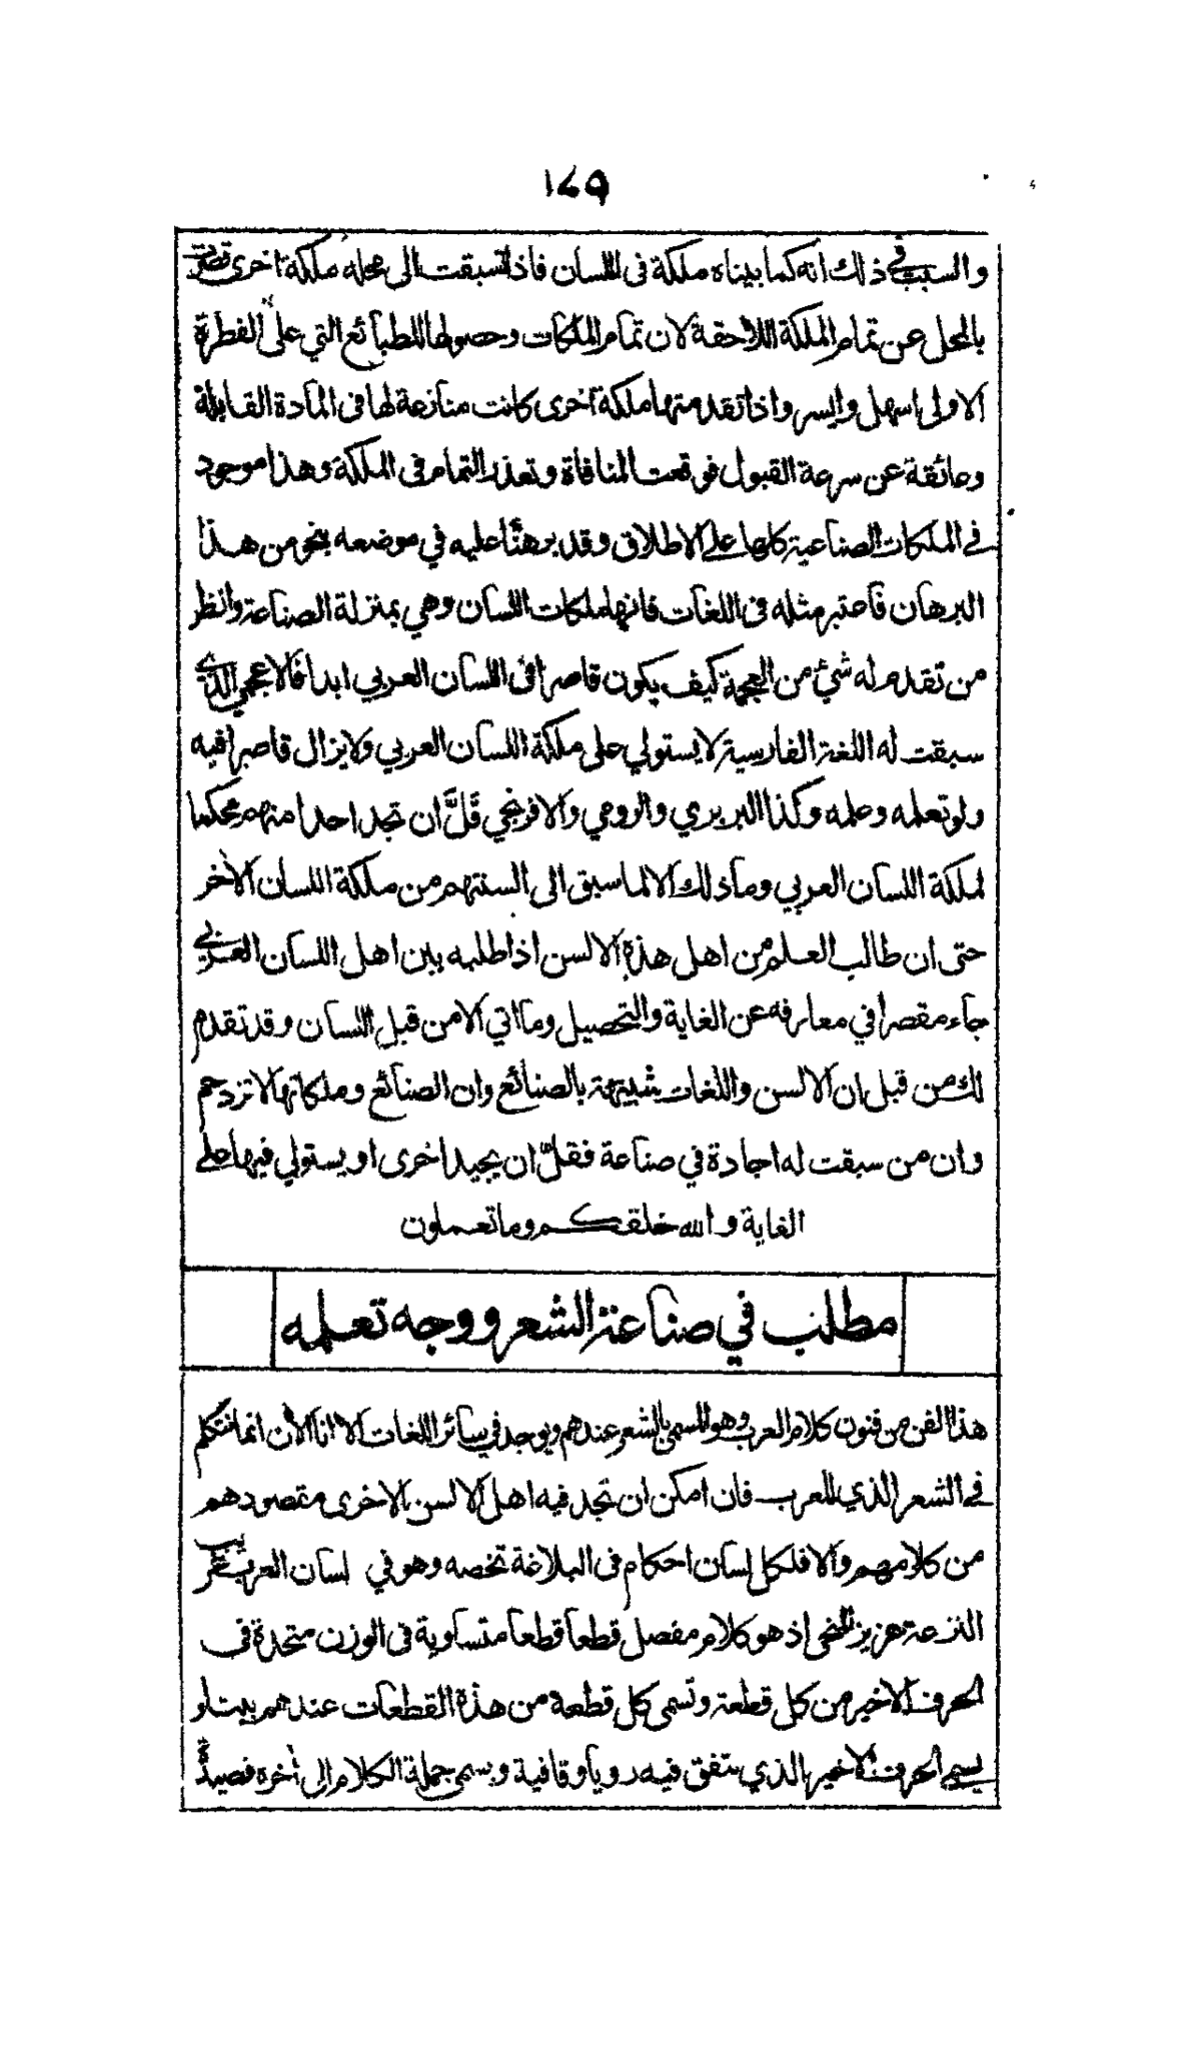 ١٤٩
والسبب في ذلك انه كما بيناه ملكة فى اللسان فاذا سبقت الى محله ملكة اخرى قصرت
بالمحل عن تمام الملكة اللاحقة لان تمام الملكات وحصولها للطبائع التي على الفطرة
الاولى اسهل وايسر واذا تقدمتها ملكة اخرى كانت منازعة لها فى المادة القابلة
وعائقة عن سرعة القبول فوقعت المنافاة وتعذر التمام فى الملكة وهذا موجود
في الملكات الصناعية كلها على الاطلاق وقد برهنّا عليه في موضعه بنحو من هذا
البرهان فاعتبر مثله فى اللغات فانها ملكات اللسان وهي بمنزلة الصناعة وانظر
من تقدم له شئ من العجمة كيف يكون قاصرا فى اللسان العربي ابدا فالاعجمي الذي
سبقت له اللغة الفارسية لا يستولي على ملكة اللسان العربي ولا يزال قاصرا فيه
ولو تعلمه وعلمه وكذا البربري والرومي والافرنجي قلّ ان تجد احدا منهم محكما
لملكة اللسان العربي وما ذلك الا لما سبق الى السنتهم من ملكة اللسان الآخر
حتى ان طالب العلم من اهل هذه الالسن اذا طلبه بين اهل اللسان العربي
جاء مقصرا في معارفه عن الغاية والتحصيل وما اتي الا من قبل اللسان وقد تقدم
لك من قبل ان الالسن واللغات شبيهة بالصنائع وان الصنائع وملكاتها لا تزدحم
وان من سبقت له اجادة في صناعة فقلّ ان يجيد اخرى او يستولي فيها على
الغاية والله خلقكم وما تعملون
مطلب في صناعة الشعر ووجه تعلمه
هذا الفن من فنون كلام العرب وهو المسمى بالشعر عندهم ويوجد في سائر اللغات الا انا الآن انما نتكلم
في الشعر الذي للعرب فان امكن ان تجد فيه اهل الالسن الاخرى مقصودهم
من كلامهم والا فلكل لسان احكام فى البلاغة تخصه وهو في لسان العرب غريب
النزعة عزيز المنحى اذ هو كلام مفصل قطعا قطعا متساوية فى الوزن متحدة فى
الحرف الاخير من كل قطعة وتسمى كل قطعة من هذه القطعات عندهم بيتا و
يسمى الحرف الاخير الذي تتفق فيه رويا وقافية ويسمى جملة الكلام الى آخره قصيدة